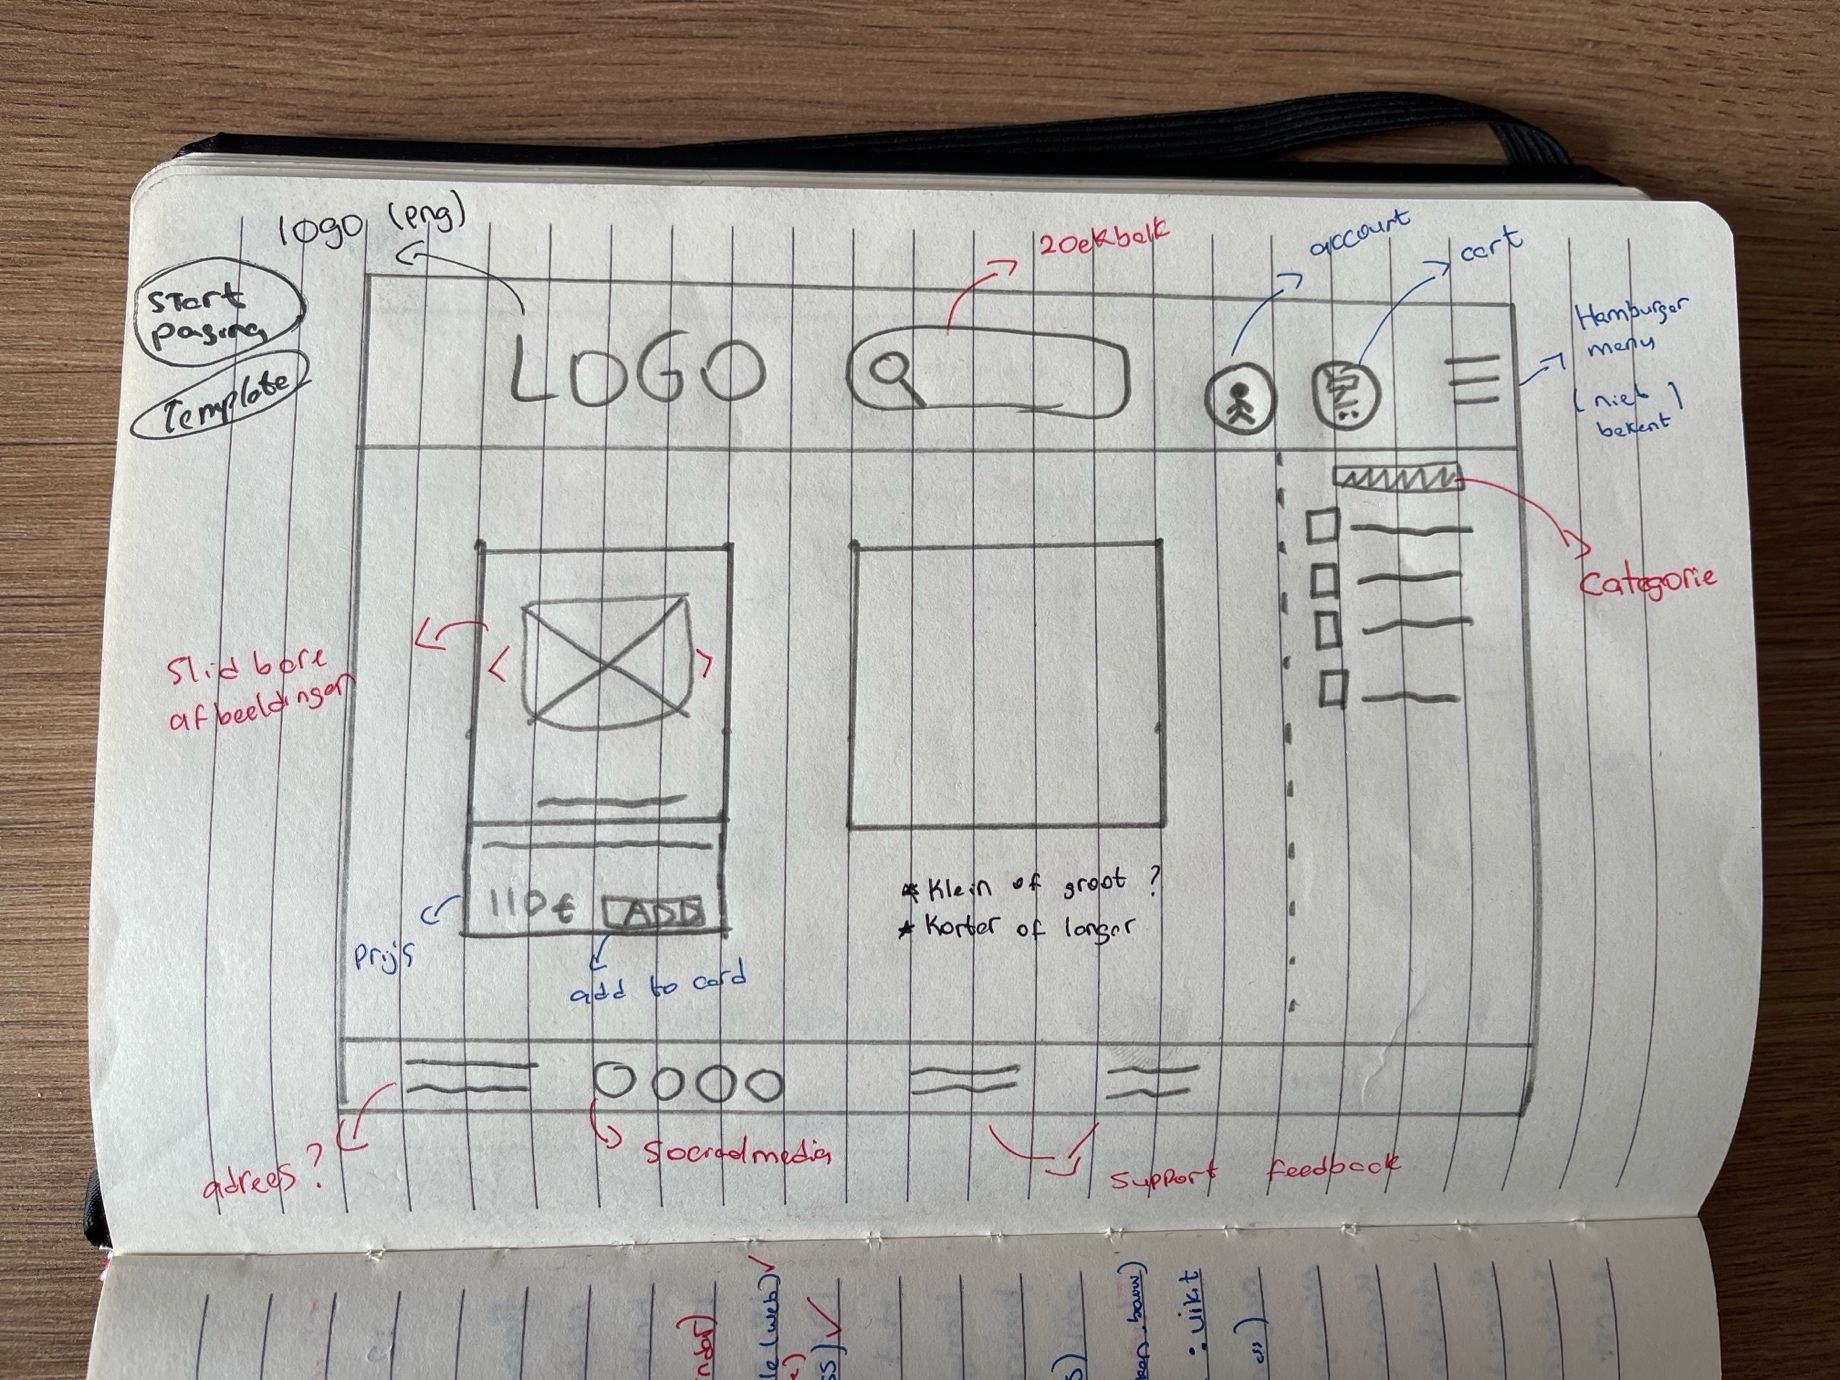 logo (png)
Start
pagina
Template
LOGO
zoekbalk
account
cart
Hamburger
menu
(niet)
bekent
Categorie
Slid bare
afbeeldingen
<
>
110€
ADD
Prijs
add to card
* Klein of groot ?
* Korter of langer
adrees ?
Socradmedia
Support feedback
(web)
.uikit